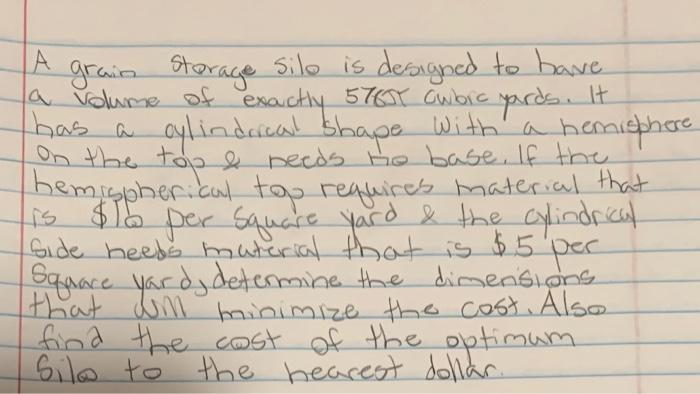 A grain storage silo is designed to have
a volume of exactly 576π cubic yards. It
has a cylindrical shape with a hemisphere
on the top & needs no base. If the
hemispherical top requires material that
is $10 per square yard & the cylindrical
side needs material that is $5 per
square yard, determine the dimensions
that will minimize the cost. Also
find the cost of the optimum
silo to the nearest dollar.